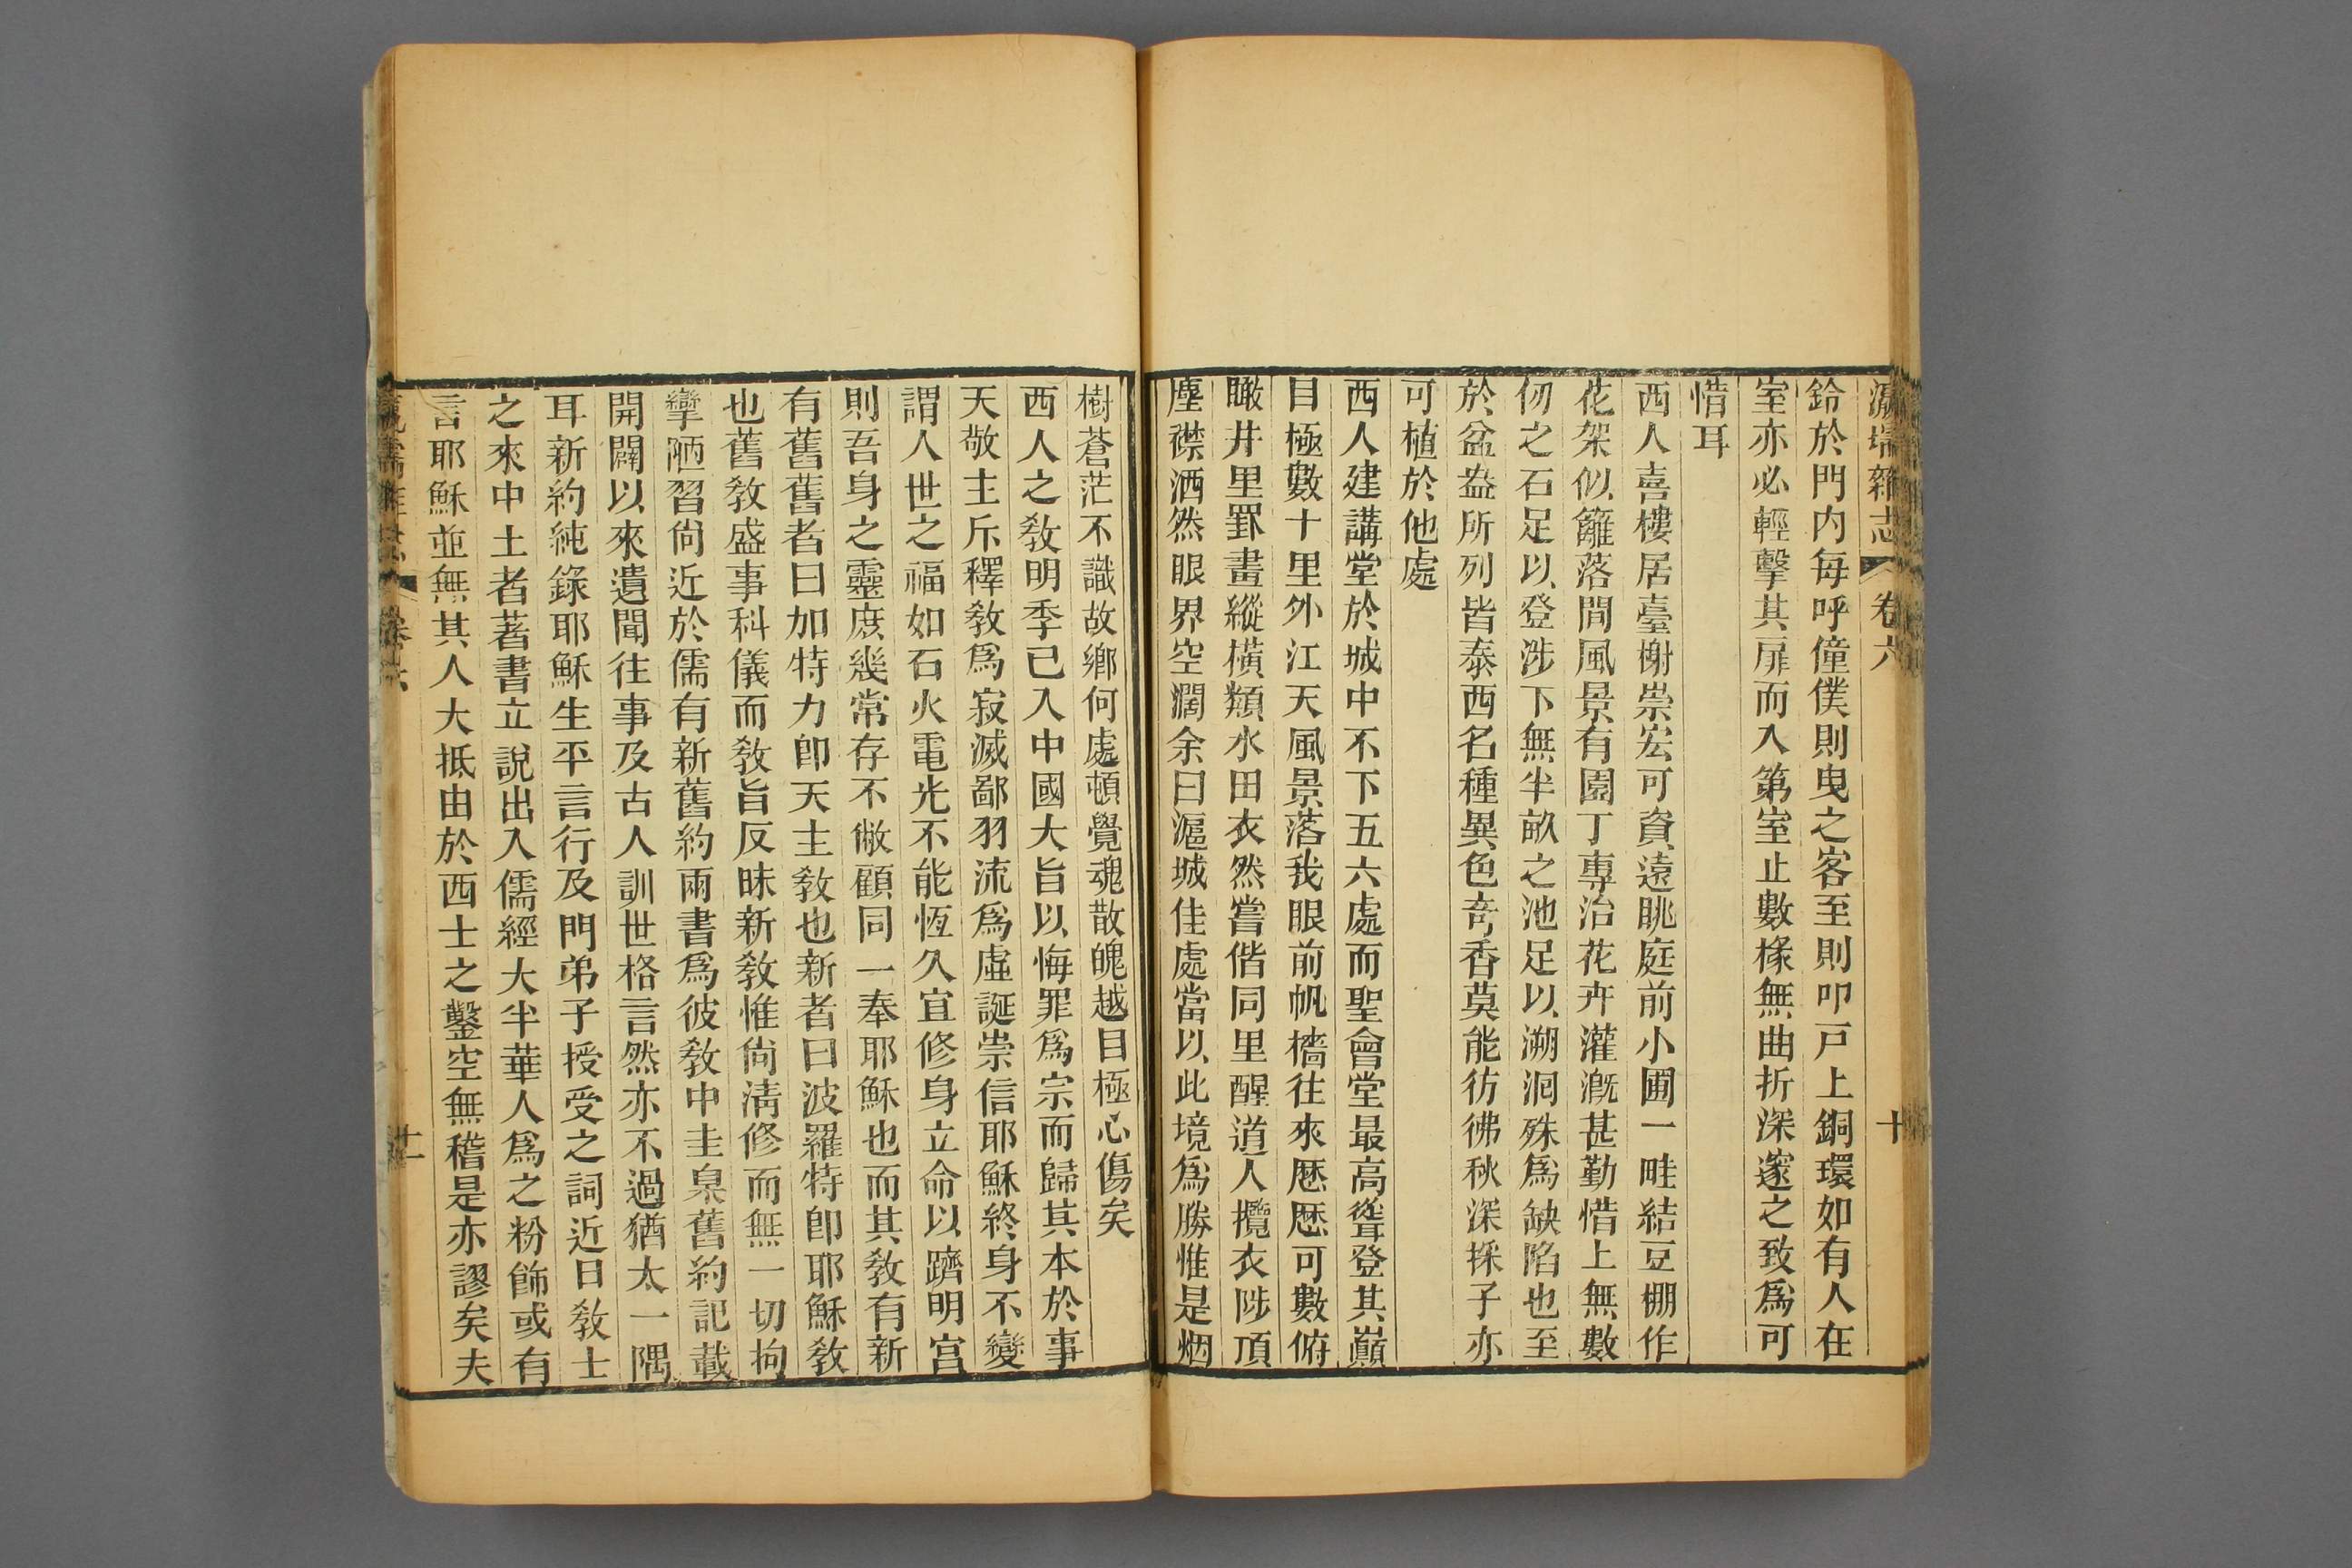 瀛壖雜志 卷六 十
鈴於門内每呼僮僕則曳之客至則叩戸上銅環如有人在
室亦必輕擊其扉而入第室止數椽無曲折深邃之致爲可
惜耳
西人喜樓居臺榭崇宏可資遠眺庭前小圃一畦結豆棚作
花架似籬落間風景有園丁專治花卉灌漑甚勤惜上無數
仞之石足以登涉下無半畝之池足以溯洄殊爲缺陷也至
於盆盎所列皆泰西名種異色奇香莫能彷彿秋深採子亦
可植於他處
西人建講堂於城中不下五六處而聖會堂最高聳登其巔
目極數十里外江天風景落我眼前帆檣往來歷歷可數俯
瞰井里罫畫縱橫類水田衣然嘗偕同里醒逍人攬衣陟頂
塵襟洒然眼界空濶余曰滬城佳處當以此境爲勝惟是烟
樹蒼茫不識故鄉何處頓覺魂散魄越目極心傷矣
西人之敎明季已入中國大旨以悔罪爲宗而歸其本於事
天敬主斥釋敎爲寂滅鄙羽流爲虛誕崇信耶穌終身不變
謂人世之福如石火電光不能恆久宜修身立命以躋明宫
則吾身之靈庶幾常存不敝顧同一奉耶穌也而其敎有新
有舊舊者曰加特力卽天主敎也新者曰波羅特卽耶穌敎
也舊敎盛事科儀而敎旨反昧新敎惟尙淸修而無一切拘
攣陋習尙近於儒有新舊約兩書爲彼敎中圭臬舊約記載
開闢以來遺聞往事及古人訓世格言然亦不過猶太一隅
耳新約純錄耶穌生平言行及門弟子授受之詞近日敎士
之來中土者著書立說出入儒經大半華人爲之粉飾或有
言耶穌並無其人大抵由於西士之鑿空無稽是亦謬矣夫
瀛壖雜志 卷六 十一